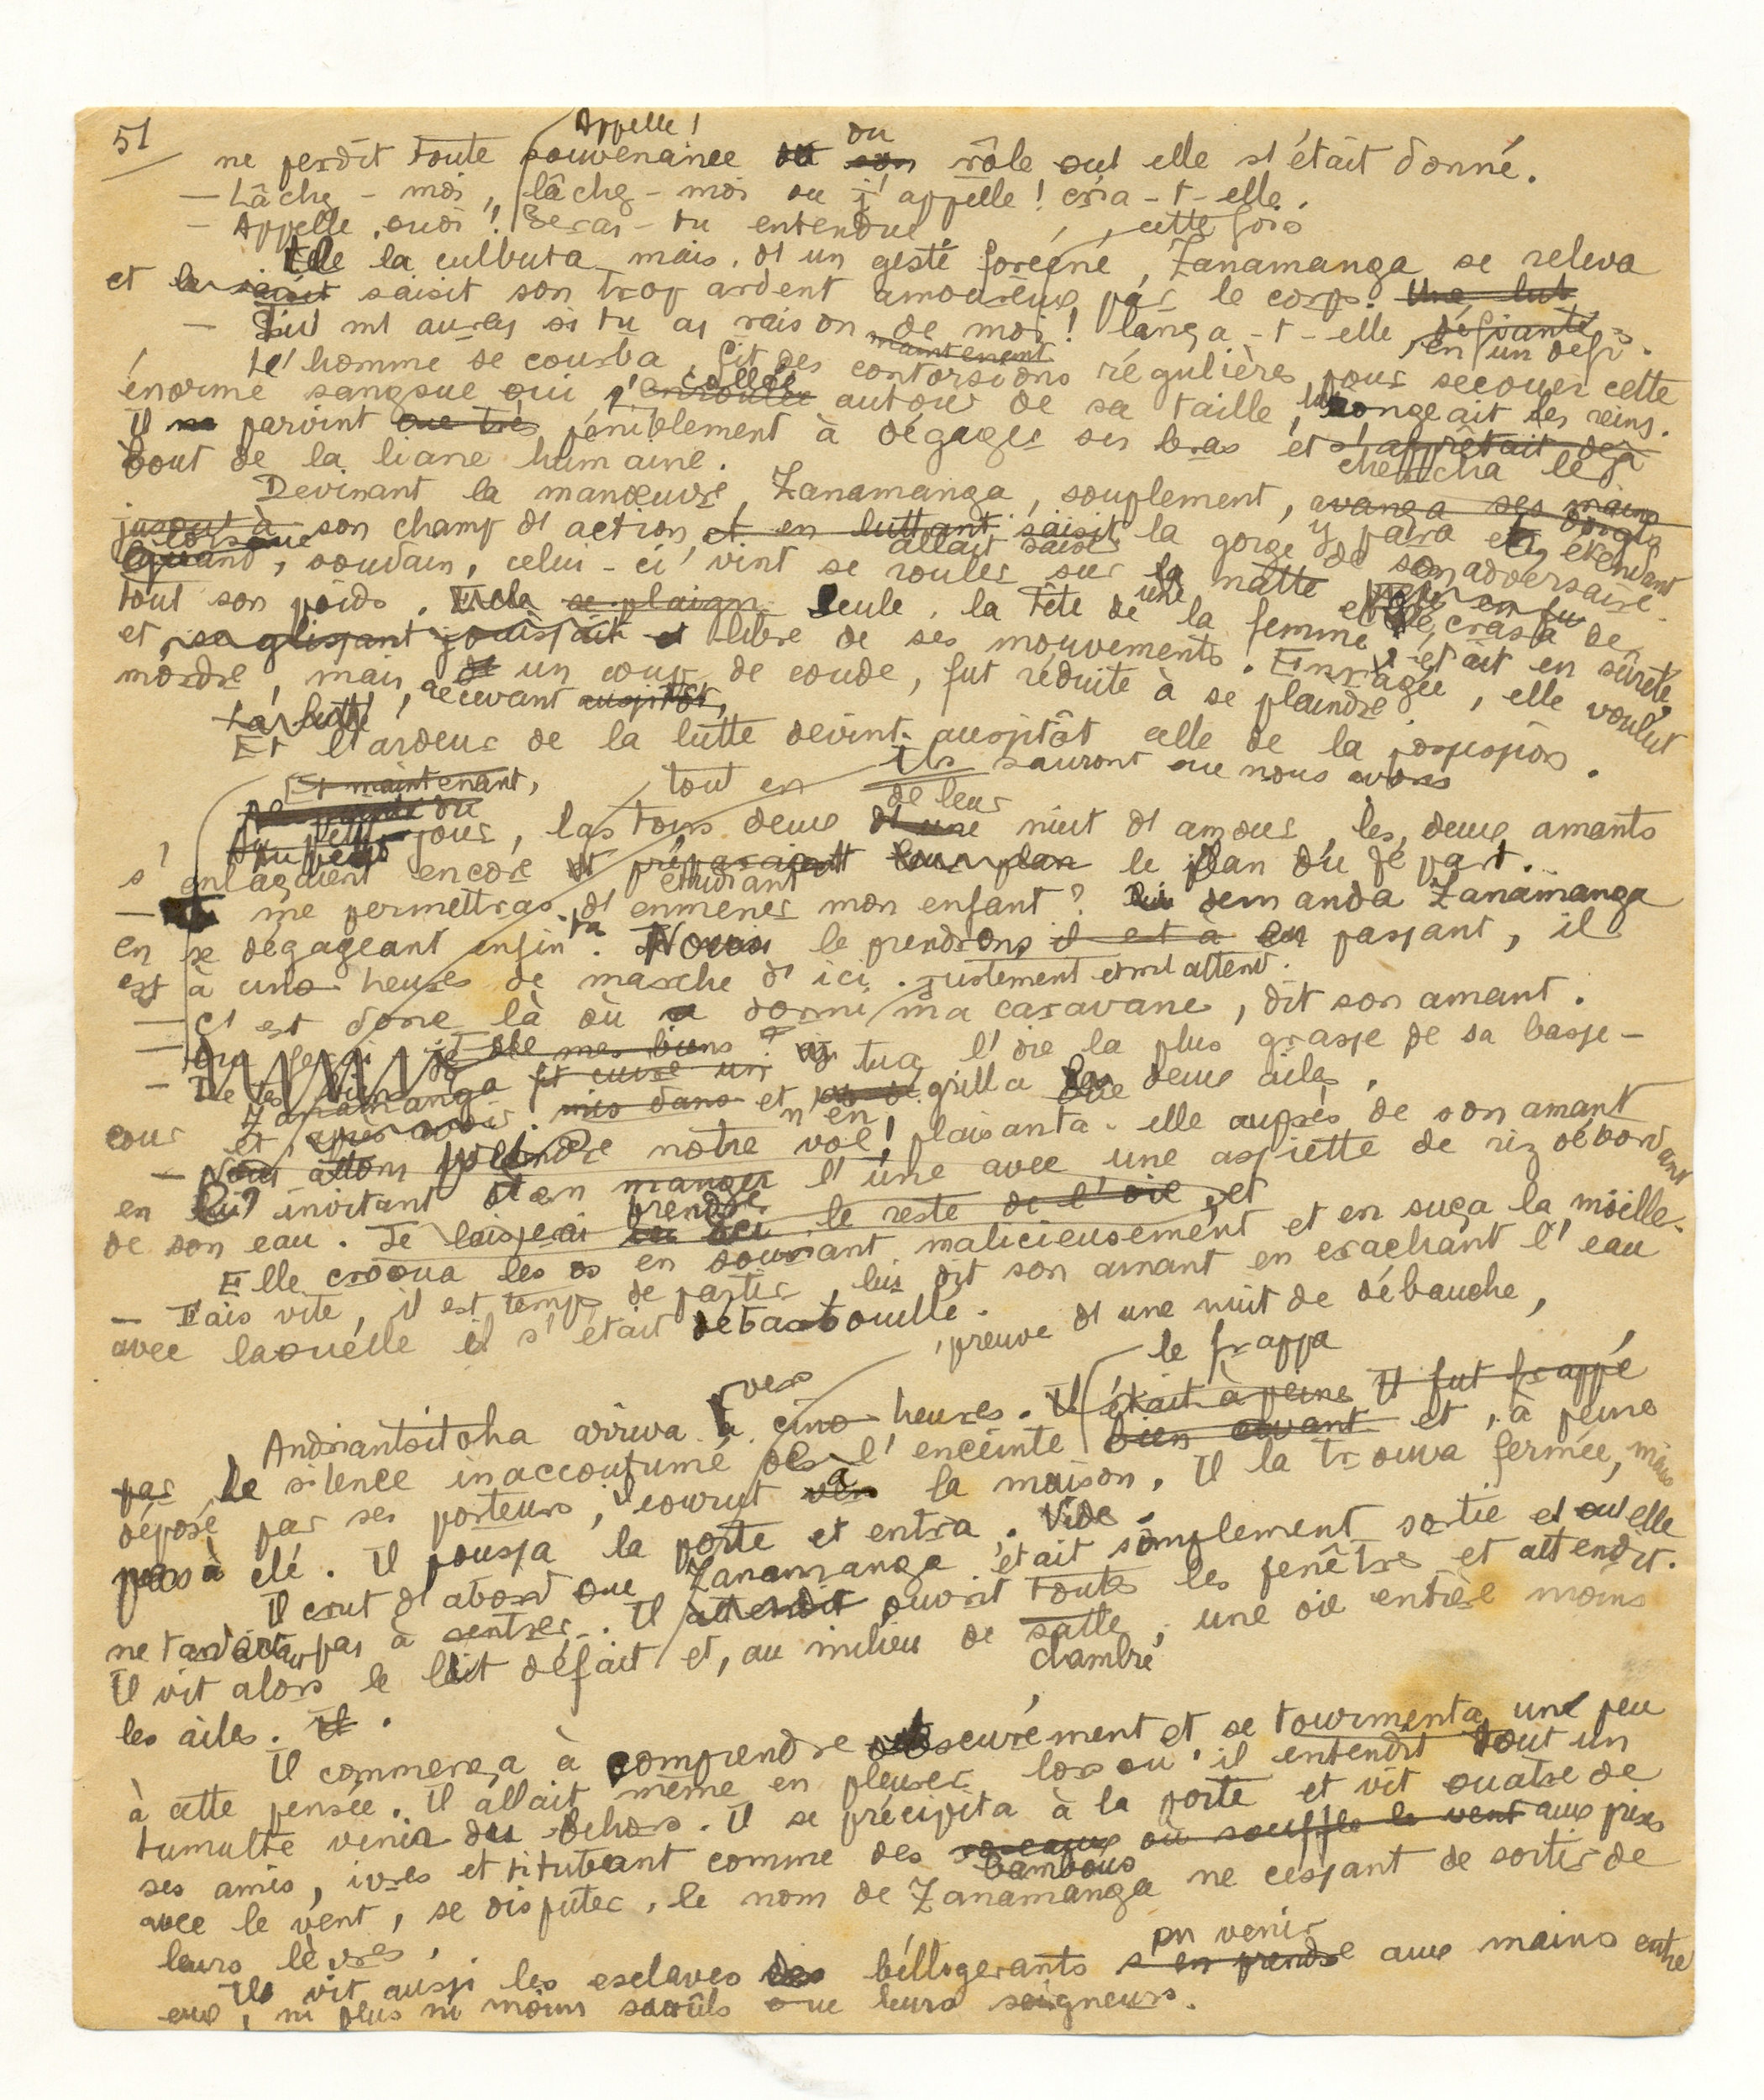 51
Appelle!
ne perdit toute souvenance du son du rôle qu'elle s'était donné.
— Lâche-moi, lâche-moi ou j'appelle! cria-t-elle.
— Appelle, quoi! Seras-tu entendue
cette fois
Elle la culbuta mais, d'un geste forcené, Zanamanga se releva
et le saisit saisit son trop ardent amoureux par le corps. Une lut
— Tu m'auras si tu as raison de moi! lança-t-elle, défiante
en un défi.
L'homme se courba, fit des contorsions régulières pour secouer cette
maintenant
énorme sangsue qui, s'enroulée collée autour de sa taille, lui rongeait les reins.
Il ne parvint que très péniblement à dégager ses bras et s'apprêtait déjà
chercha le
bout de la liane humaine.
Devinant la manœuvre, Zanamanga, souplement, avança ses mains
jusqu'à son champ d'action, et en luttant saisit la gorge de son adversaire
y para et, étendant
lorsque quand, soudain, celui-ci vint se rouler sur la natte et l'écrasa de
allait saisir
tout son poids. Elle se plaign Seule, la tête de la femme était en sûreté
et se glissant jouissait et libre de ses mouvements. Enragée, elle voulut
mordre, mais, recevant aussitôt, un coup de coude, fut réduite à se plaindre.
La lutte
Et l'ardeur de la lutte devint aussitôt celle de la possession.
Ils sauront que nous avons
Et maintenant, tout en
Au petit jour, las tous deux d'une de leur nuit d'amour, les deux amants
s'enlaçaient encore et préparaient étudiant leur plan le plan du départ.
— me permettras-tu d'emmener mon enfant? lui demanda Zanamanga
en se dégageant enfin. Nous le prendrons il est à en passant, il
est à une heure de marche d'ici, justement et m'attend.
— C'est donc là où a dormi ma caravane, dit son amant.
Zanamanga fit cuire un tua l'oie la plus grasse de sa basse-
cour et après avoir mis dans et en grilla les deux ailes.
— Nous allons prendre notre vol! plaisanta-elle auprès de son amant
en lui invitant d'en manger prendre l'une avec une assiette de riz débordant
de son eau. Je laisserai le reste de l'oie et
Elle croqua les os en souriant malicieusement et en suça la moelle.
— Fais vite, il est temps de partir, lui dit son amant en crachant l'eau
avec laquelle il s'était débarbouillé.
preuve d'une nuit de débauche,
le frappa
Andriantsitoha arriva à vers cinq heures. Il était à peine Il fut frappé
par le silence inaccoutumé dès l'enceinte bien avant et, à peine
déposé par ses porteurs, courut vers à la maison. Il la trouva fermée, mais
pas à clé. Il poussa la porte et entra. Vide.
Il crut d'abord que Zanamanga était simplement sortie et qu'elle
ne tarderait pas à rentrer. Il attendit ouvrit toutes les fenêtres et attendit.
Il vit alors le lit défait et, au milieu de salle, une oie entière moins
chambre
les ailes. Il.
Il commença à comprendre obscurément et se tourmenta une peu
à cette pensée. Il allait même en pleurer lorsqu'il entendit tout un
tumulte venir du dehors. Il se précipita à la porte et vit quatre de
ses amis, ivres et titubant comme des roseaux où souffle le vent aux prises
bambous
avec le vent, se disputer, le nom de Zanamanga ne cessant de sortir de
leurs lèvres.
Il vit aussi les esclaves des belligérants s'en prendre en venir aux mains entre
eux, ni plus ni moins saouls que leurs seigneurs.